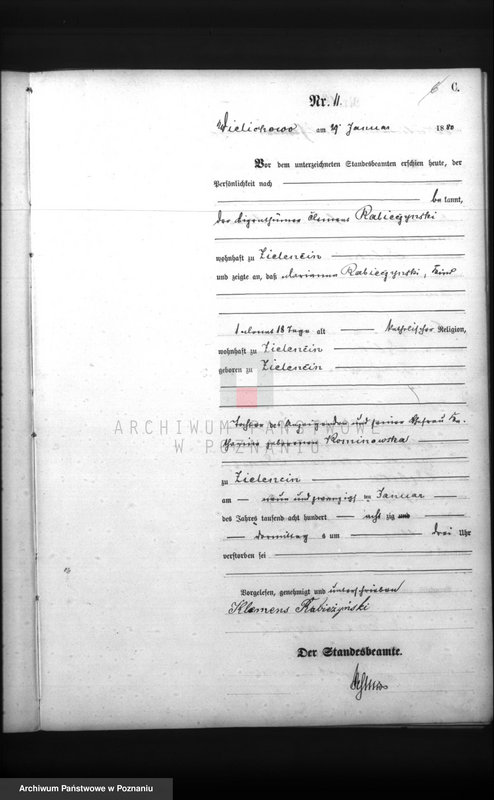 C.
Nr. 11.
Wielichowo am 29 Januar 1880
Vor dem unterzeichneten Standesbeamten erschien heute, der
Persönlichkeit nach
be kannt,
der Eigenthümer Clemens Rabieczynski
wohnhaft zu Zielencin
und zeigte an, daß Marianna Rabieczynski, Kind
1 Monat 18 Tage alt katholischer Religion,
wohnhaft zu Zielencin
geboren zu Zielencin
Tochter des Anzeigenden und seiner Ehefrau Ka-
tharina geborenen Kominowska
ARCHIWUM PAŃSTWOWE
W POZNANIU
zu Zielencin
am neun und zwanzigsten Januar
des Jahres tausend acht hundert acht zig und
Vormittag s um drei Uhr
verstorben sei
Vorgelesen, genehmigt und unterschrieben
Klemens Rabieżyński
Der Standesbeamte.
Archiwum Państwowe w Poznaniu